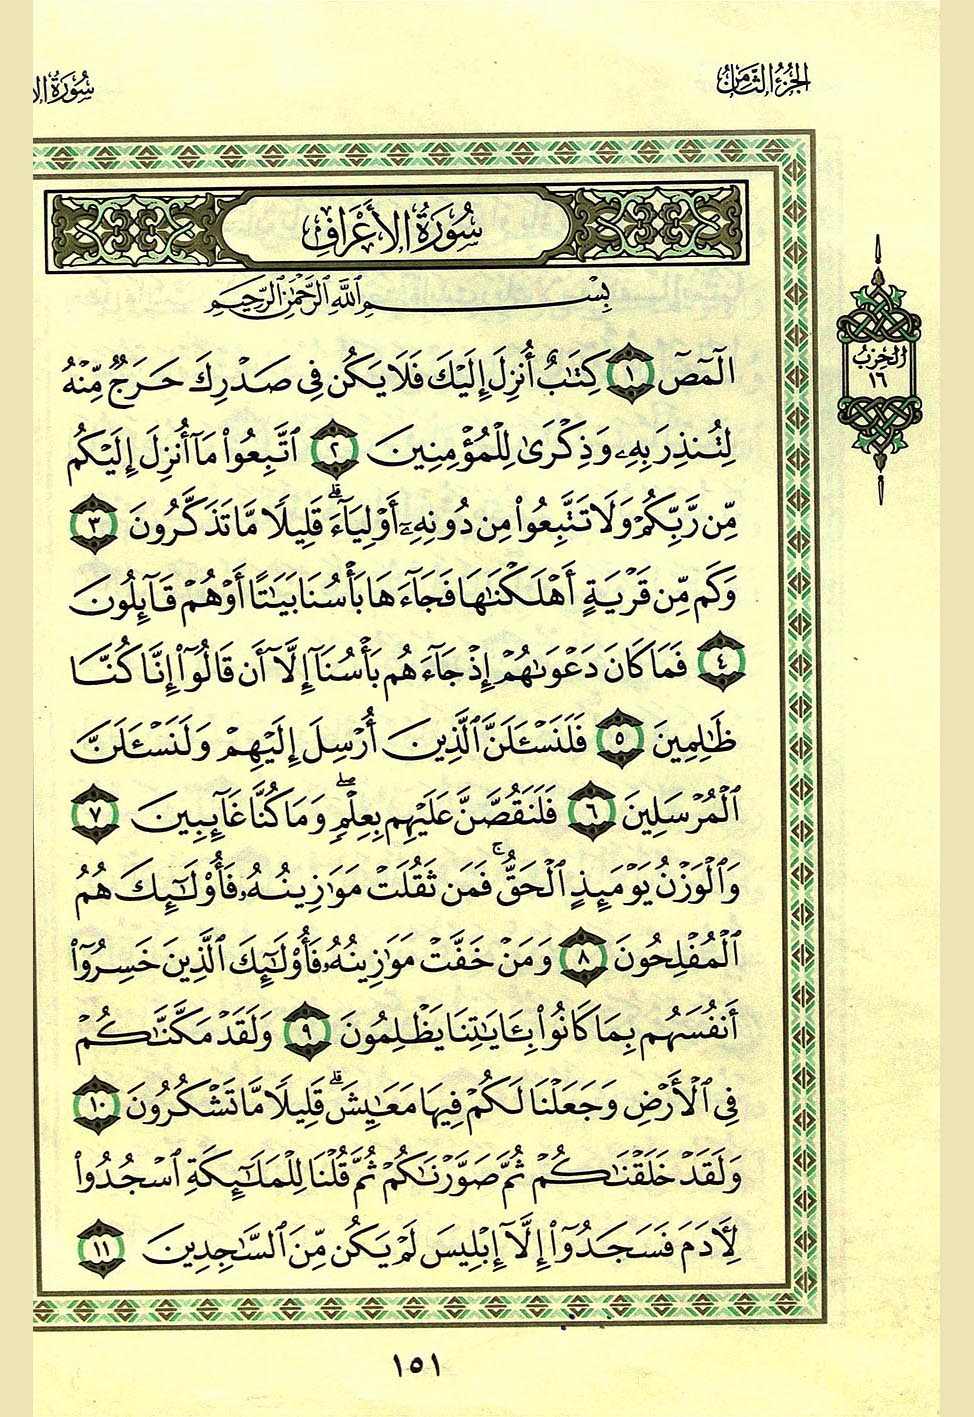 الجزء الثامن
سورة الا
سُورَةُ الأَعْرَافِ
بِسْمِ ٱللَّهِ ٱلرَّحْمَٰنِ ٱلرَّحِيمِ
الٓمٓصٓ ١ كِتَٰبٌ أُنزِلَ إِلَيْكَ فَلَا يَكُن فِى صَدْرِكَ حَرَجٌ مِّنْهُ
لِتُنذِرَ بِهِۦ وَذِكْرَىٰ لِلْمُؤْمِنِينَ ٢ ٱتَّبِعُوا۟ مَآ أُنزِلَ إِلَيْكُم
مِّن رَّبِّكُمْ وَلَا تَتَّبِعُوا۟ مِن دُونِهِۦٓ أَوْلِيَآءَ ۗ قَلِيلًا مَّا تَذَكَّرُونَ ٣
وَكَم مِّن قَرْيَةٍ أَهْلَكْنَٰهَا فَجَآءَهَا بَأْسُنَا بَيَٰتًا أَوْ هُمْ قَآئِلُونَ
٤ فَمَا كَانَ دَعْوَىٰهُمْ إِذْ جَآءَهُم بَأْسُنَآ إِلَّآ أَن قَالُوٓا۟ إِنَّا كُنَّا
ظَٰلِمِينَ ٥ فَلَنَسْـَٔلَنَّ ٱلَّذِينَ أُرْسِلَ إِلَيْهِمْ وَلَنَسْـَٔلَنَّ
ٱلْمُرْسَلِينَ ٦ فَلَنَقُصَّنَّ عَلَيْهِم بِعِلْمٍ ۖ وَمَا كُنَّا غَآئِبِينَ ٧
وَٱلْوَزْنُ يَوْمَئِذٍ ٱلْحَقُّ ۚ فَمَن ثَقُلَتْ مَوَٰزِينُهُۥ فَأُو۟لَٰٓئِكَ هُمُ
ٱلْمُفْلِحُونَ ٨ وَمَنْ خَفَّتْ مَوَٰزِينُهُۥ فَأُو۟لَٰٓئِكَ ٱلَّذِينَ خَسِرُوٓا۟
أَنفُسَهُم بِمَا كَانُوا۟ بِـَٔايَٰتِنَا يَظْلِمُونَ ٩ وَلَقَدْ مَكَّنَّٰكُمْ
فِى ٱلْأَرْضِ وَجَعَلْنَا لَكُمْ فِيهَا مَعَٰيِشَ ۗ قَلِيلًا مَّا تَشْكُرُونَ ١٠
وَلَقَدْ خَلَقْنَٰكُمْ ثُمَّ صَوَّرْنَٰكُمْ ثُمَّ قُلْنَا لِلْمَلَٰٓئِكَةِ ٱسْجُدُوا۟
لِـَٔادَمَ فَسَجَدُوٓا۟ إِلَّآ إِبْلِيسَ لَمْ يَكُن مِّنَ ٱلسَّٰجِدِينَ ١١
الحزب
١٦
١٥١